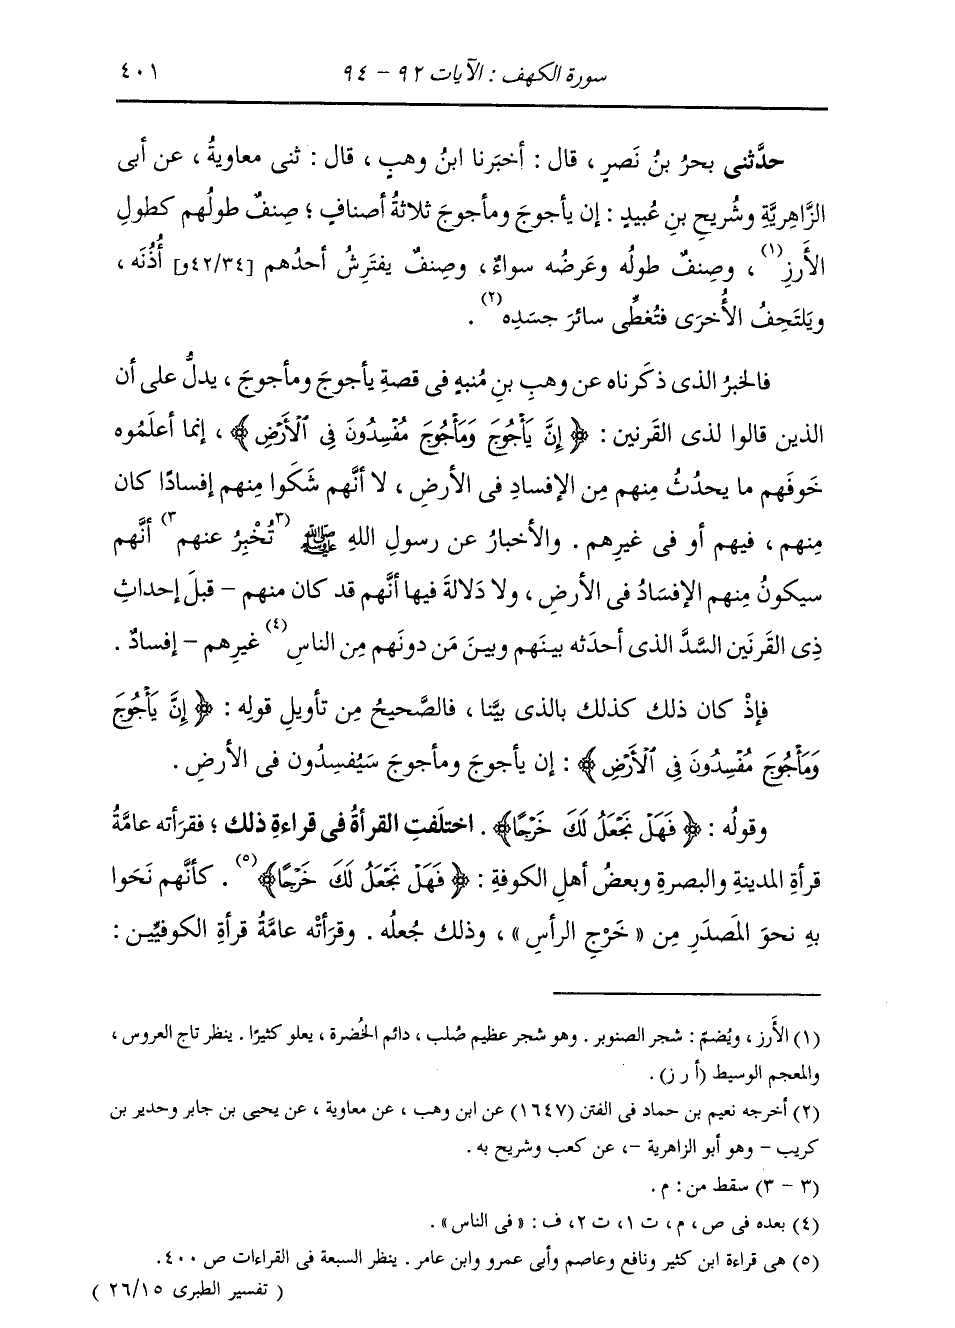 سورة الكهف : الآيات ٩٢ - ٩٤ ٤٠١
حدَّثنى بحرُ بنُ نَصرٍ ، قال : أخبَرنا ابنُ وهبٍ ، قال : ثنى معاويةُ ، عن أبى
الزَّاهريَّةِ وشُريحِ بنِ عُبيدٍ : إن يأجوجَ ومأجوجَ ثلاثةُ أصنافٍ ؛ صِنفٌ طولُهم كطولِ
الأَرزِ(١) ، وصِنفٌ طولُه وعَرضُه سواءٌ ، وصِنفٌ يفتَرِشُ أحدُهم [٤٢/٣٤و] أُذُنَه ،
ويَلتَحِفُ الأُخرَى فتُغطِّى سائرَ جسَدِه(٢) .
فالخبرُ الذى ذكَرناه عن وهبِ بنِ مُنبهٍ فى قصةِ يأجوجَ ومأجوجَ ، يدلُّ على أن
الذين قالوا لذى القَرنين : ﴿ إِنَّ يَأْجُوجَ وَمَأْجُوجَ مُفْسِدُونَ فِى ٱلْأَرْضِ ﴾ ، إنما أعلَمُوه
خَوفَهم ما يحدُثُ مِنهم مِن الإفسادِ فى الأرضِ ، لا أنَّهم شَكَوا مِنهم إفسادًا كان
مِنهم ، فيهم أو فى غيرِهم . والأخبارُ عن رسولِ اللهِ ﷺ (٣تُخْبِرُ عنهم٣) أنَّهم
سيكونُ مِنهم الإفسَادُ فى الأرضِ ، ولا دَلالةَ فيها أنَّهم قد كان منهم - قبلَ إحداثِ
ذِى القَرنَين السَّدَّ الذى أحدَثه بينَهم وبينَ مَن دونَهم مِن الناسِ(٤) غيرِهم - إفسادٌ .
فإذْ كان ذلك كذلك بالذى بيَّنا ، فالصَّحيحُ مِن تأويلِ قولِه : ﴿ إِنَّ يَأْجُوجَ
وَمَأْجُوجَ مُفْسِدُونَ فِى ٱلْأَرْضِ ﴾ : إن يأجوجَ ومأجوجَ سَيُفسِدُون فى الأرضِ .
وقولُه : ﴿ فَهَلْ نَجْعَلُ لَكَ خَرْجًا﴾ . اختلَفتِ القرأةُ فى قراءةِ ذلك ؛ فقرَأته عامَّةُ
قرأةِ المدينةِ والبصرةِ وبعضُ أهلِ الكوفةِ : ﴿ فَهَلْ نَجْعَلُ لَكَ خَرْجًا﴾(٥) . كأنَّهم نَحَوا
بهِ نحوَ المَصدَرِ مِن « خَرْجِ الرأسِ » ، وذلك جُعلُه . وقرَأتْه عامَّةُ قرأةِ الكوفيِّين :
(١) الأَرز ، ويُضمّ : شجر الصنوبر . وهو شجر عظيم صُلب ، دائم الخُضرة ، يعلو كثيرًا . ينظر تاج العروس ،
والمعجم الوسيط (أ ر ز) .
(٢) أخرجه نعيم بن حماد فى الفتن (١٦٤٧) عن ابن وهب ، عن معاوية ، عن يحيى بن جابر وحدير بن
كريب - وهو أبو الزاهرية -، عن كعب وشريح به .
(٣ - ٣) سقط من : م .
(٤) بعده فى ص ، م ، ت ١، ت ٢، ف : « فى الناس » .
(٥) هى قراءة ابن كثير ونافع وعاصم وأبى عمرو وابن عامر . ينظر السبعة فى القراءات ص ٤٠٠.
( تفسير الطبرى ٢٦/١٥ )